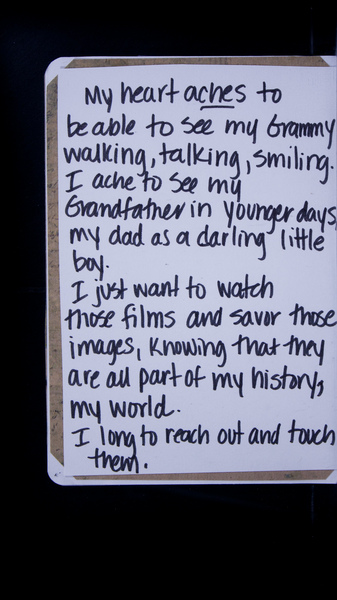 My heart aches to
be able to see my Grammy
walking, talking, smiling.
I ache to see my
Grandfather in younger days,
my dad as a darling little
boy.
I just want to watch
those films and savor those
images, knowing that they
are all part of my history,
my world.
I long to reach out and touch
them.